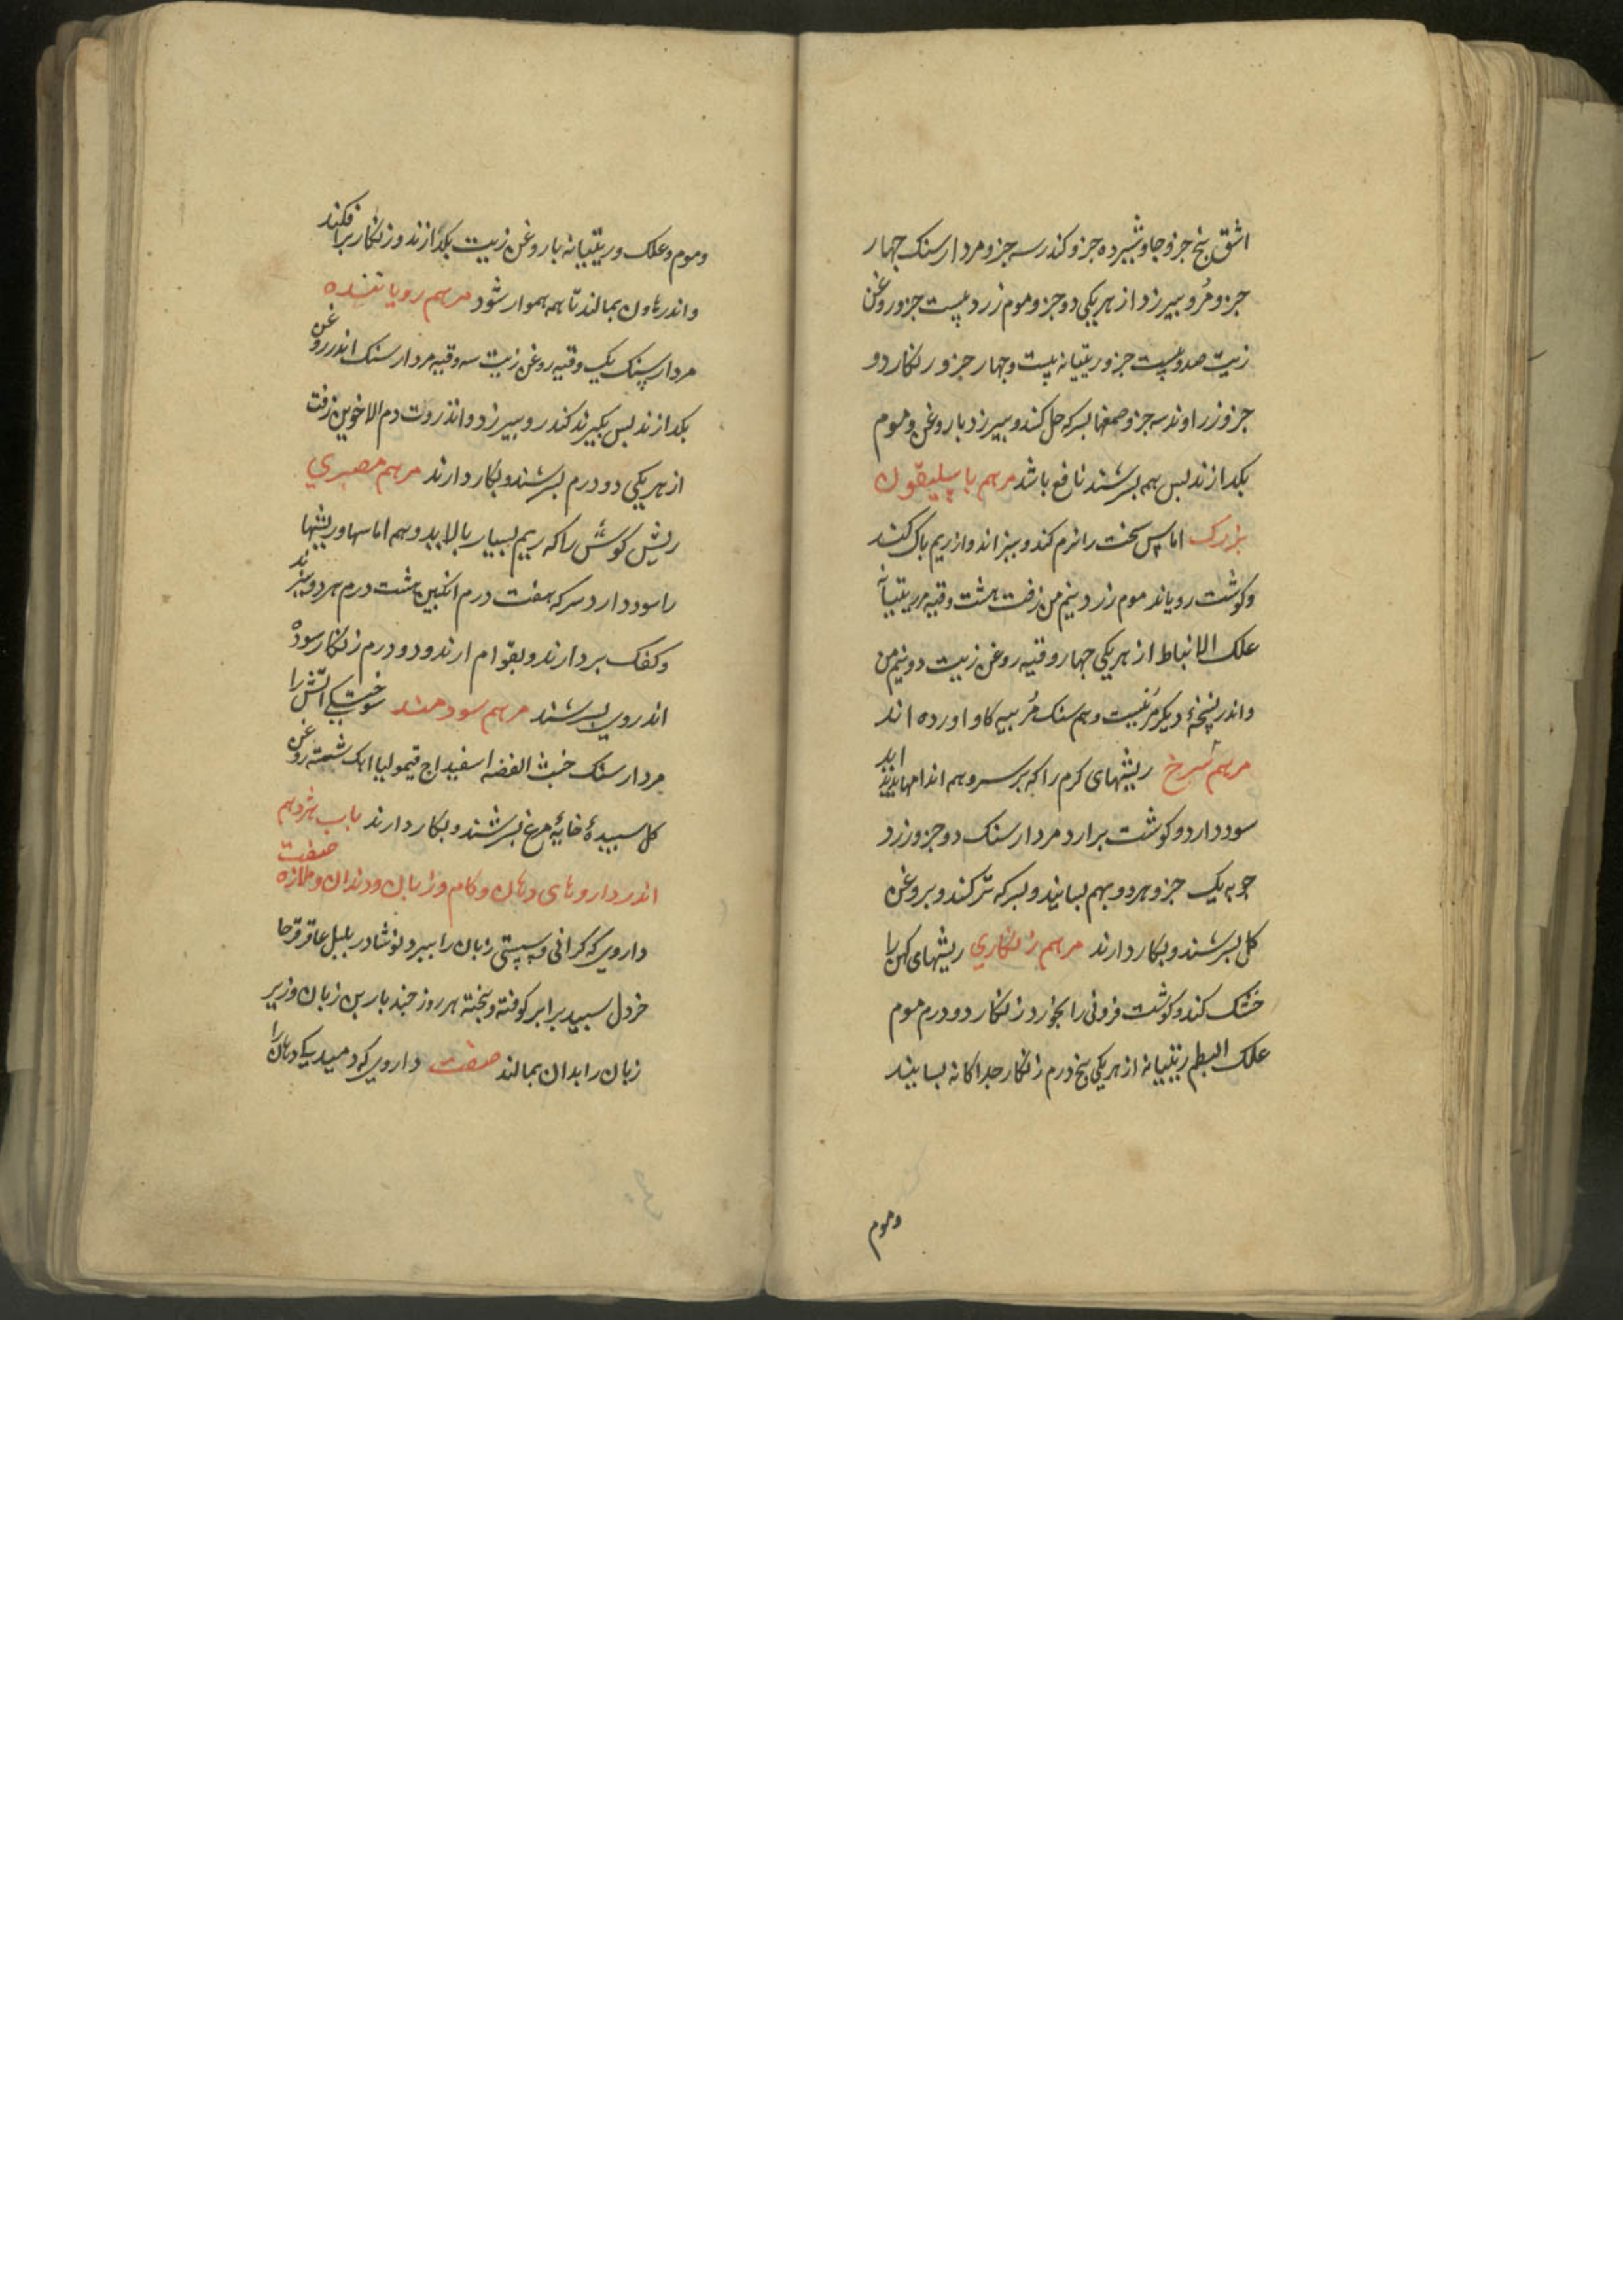 اشق پنج جزو جاوشیر ده جزو کندر سه جزو مردارسنک جهار
جزو مُر و بیرزد از هر یکی دو جزو موم زرد بیست جزو روغن
زیت صد و بیست جزو ریتیانه بیست و جهار جزو زنکار دو
جزو زراوند سه جزو صمغها بسرکه حل کنند و بیرزد با روغن و موم
بکدازند بس بهم بسرشند نافع باشد مرهم باسلیقون
بزرک اماس سخت را نرم کند و ببزاند و از ریم باک کند
و کوشت رویاند موم زرد نیم من زفت هشت وقیه مر ریتیانه
علک الانباط از هر یکی جهار وقیه روغن زیت دو نیم من
و اندر نسخهٔ دیکر مُر نیست و هم سنک مُر بیه کاو اورده اند
مرهم سُرخ ریشهای کرم را که بر سر و همه اندامها بدید اید
سود دارد و کوشت برارد مردارسنک دو جزو زرد
جوبه یک جزو هر دو بهم بسایند و بسرکه تر کنند و بروغن
کل بسرشند و بکار دارند مرهم زنکاری ریشهای کهن را
خشک کند و کوشت فزونی را بخورد زنکار دو درم موم
علک البطم ریتیانه از هر یکی پنج درم زنکار جداکانه بسایند
وموم
و موم و علک و ریتیانه با روغن زیت بکدازند و زنکار برافکنند
و اندر هاون بمالند تا همه هموار شود مرهم رویانننده
مردارسنک یک وقیه روغن زیت سه وقیه مردارسنک اندر روغن
بکدازند بس بکیرند کندر و بیرزد و انذروت دم الاخوین زفت
از هر یکی دو درم بسرشند و بکار دارند مرهم مصری
ریش کوش را که ریم بسیار بالاید و همه اماسها و ریشها
را سود دارد سرکه هفت درم انکبین هشت درم هر دو ببزند
و کفک بردارند و بقوام ارند و دو درم زنکار سوده
اندر وی بسرشند مرهم سودمند سوختکی اتش را
مردارسنک خبث الفضه اسفیداج قیمولیا اهک شسته روغن
کل سبیدهٔ خایهٔ مرغ بسرشند و بکار دارند باب هژدهم
اندر داروهای دهان و کام و زبان و دندان و ملازه صفت
داروی که کرانی و سستی زبان را ببرد نوشادر بلبل عاقرقرحا
خردل سبید برابر کوفته و بیخته هر روز جند بار بن زبان و زیر
زبان را بدان بمالند صفت داروی که دمیدیکی دهان را